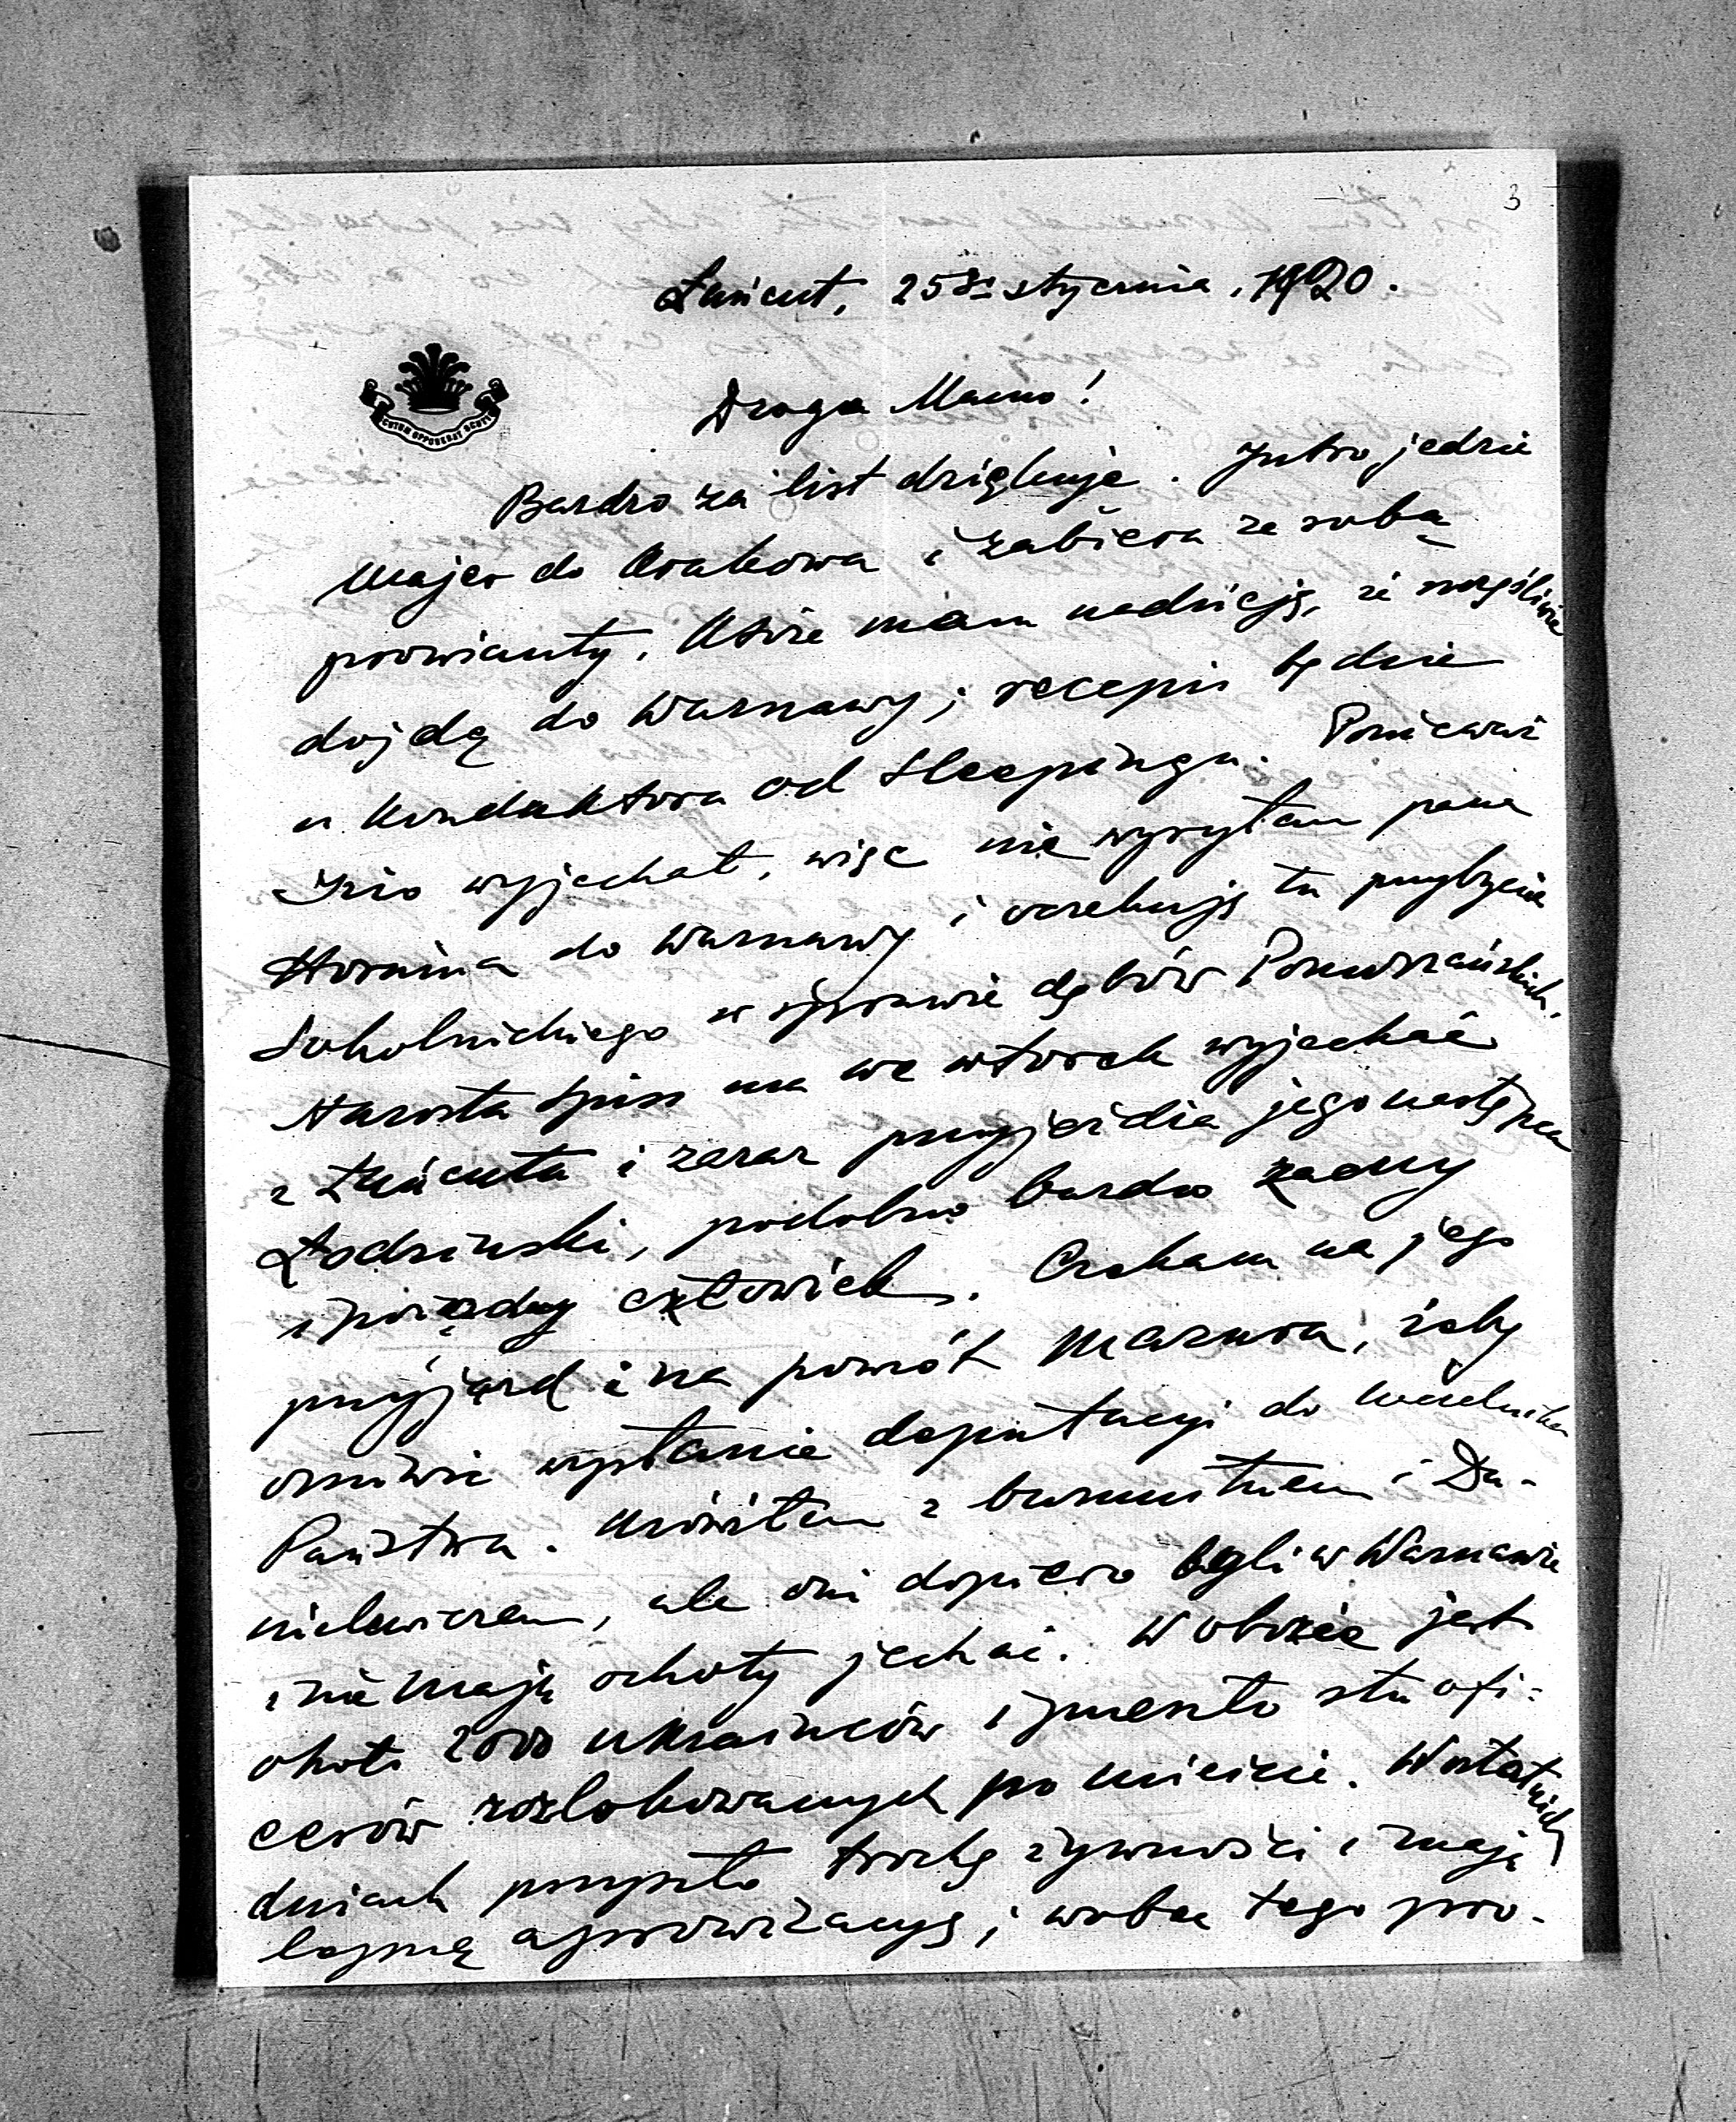 3
Łańcut, 25go stycznia, 1920.
SCUTUM OPPONEBAT SCUTIS
Droga Mamo!
Bardzo za list dziękuję. Jutro jedzie
Majer do Krakowa i zabiera ze sobą
prowianty, które mam nadzieję, że szczęśliwie
dojdą do Warszawy; recepis będzie
u konduktora od Sleepingu. Ponieważ
Izio wyjechał, więc nie wysyłam pana
do Warszawy i oczekuję tu przybycia
Sokolnickiego w sprawie dębów
Starosta Spiss ma we wtorek wyjechać
z Łańcuta i zaraz przyjeżdża jego następca
Łodzinski, podobno bardzo zacny
i porządny człowiek. Czekam na jego
przyjazd i na powrót Mazura, żeby
omówić wysłanie deputacyi do Naczelnika
Państwa. Mówiłem z burmistrzem i Du-
nikiewiczem, ale oni dopiero byli w Warszawie
i nie mają ochoty jechać. W obozie jest
około 2000 Ukraińców i zresztą stu ofi-
cerów rozlokowanych po mieście. W ostatnich
dniach przyszło trochę żywności i mają
lepszą aprowizacyę; wobec tego pro-